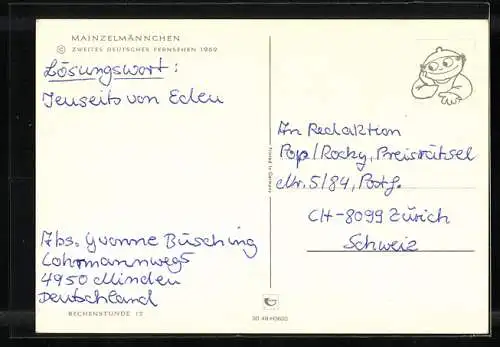 MAINZELMÄNNCHEN
© ZWEITES DEUTSCHES FERNSEHEN 1969
Lösungswort:
Jenseits von Eden
Abs. Yvonne Büsching
Lohrmannweg 5
4950 Minden
Deutschland
RECHENSTUNDE 12
Printed in Germany
An Redaktion
Pop/Rocky, Preisrätsel
Nr. 5/84, Postf.
CH-8099 Zürich
Schweiz